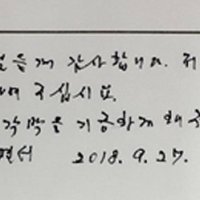 감사합니다. 저
주십시요.
각막을 기증하게 해주
면서 2018. 9. 27.